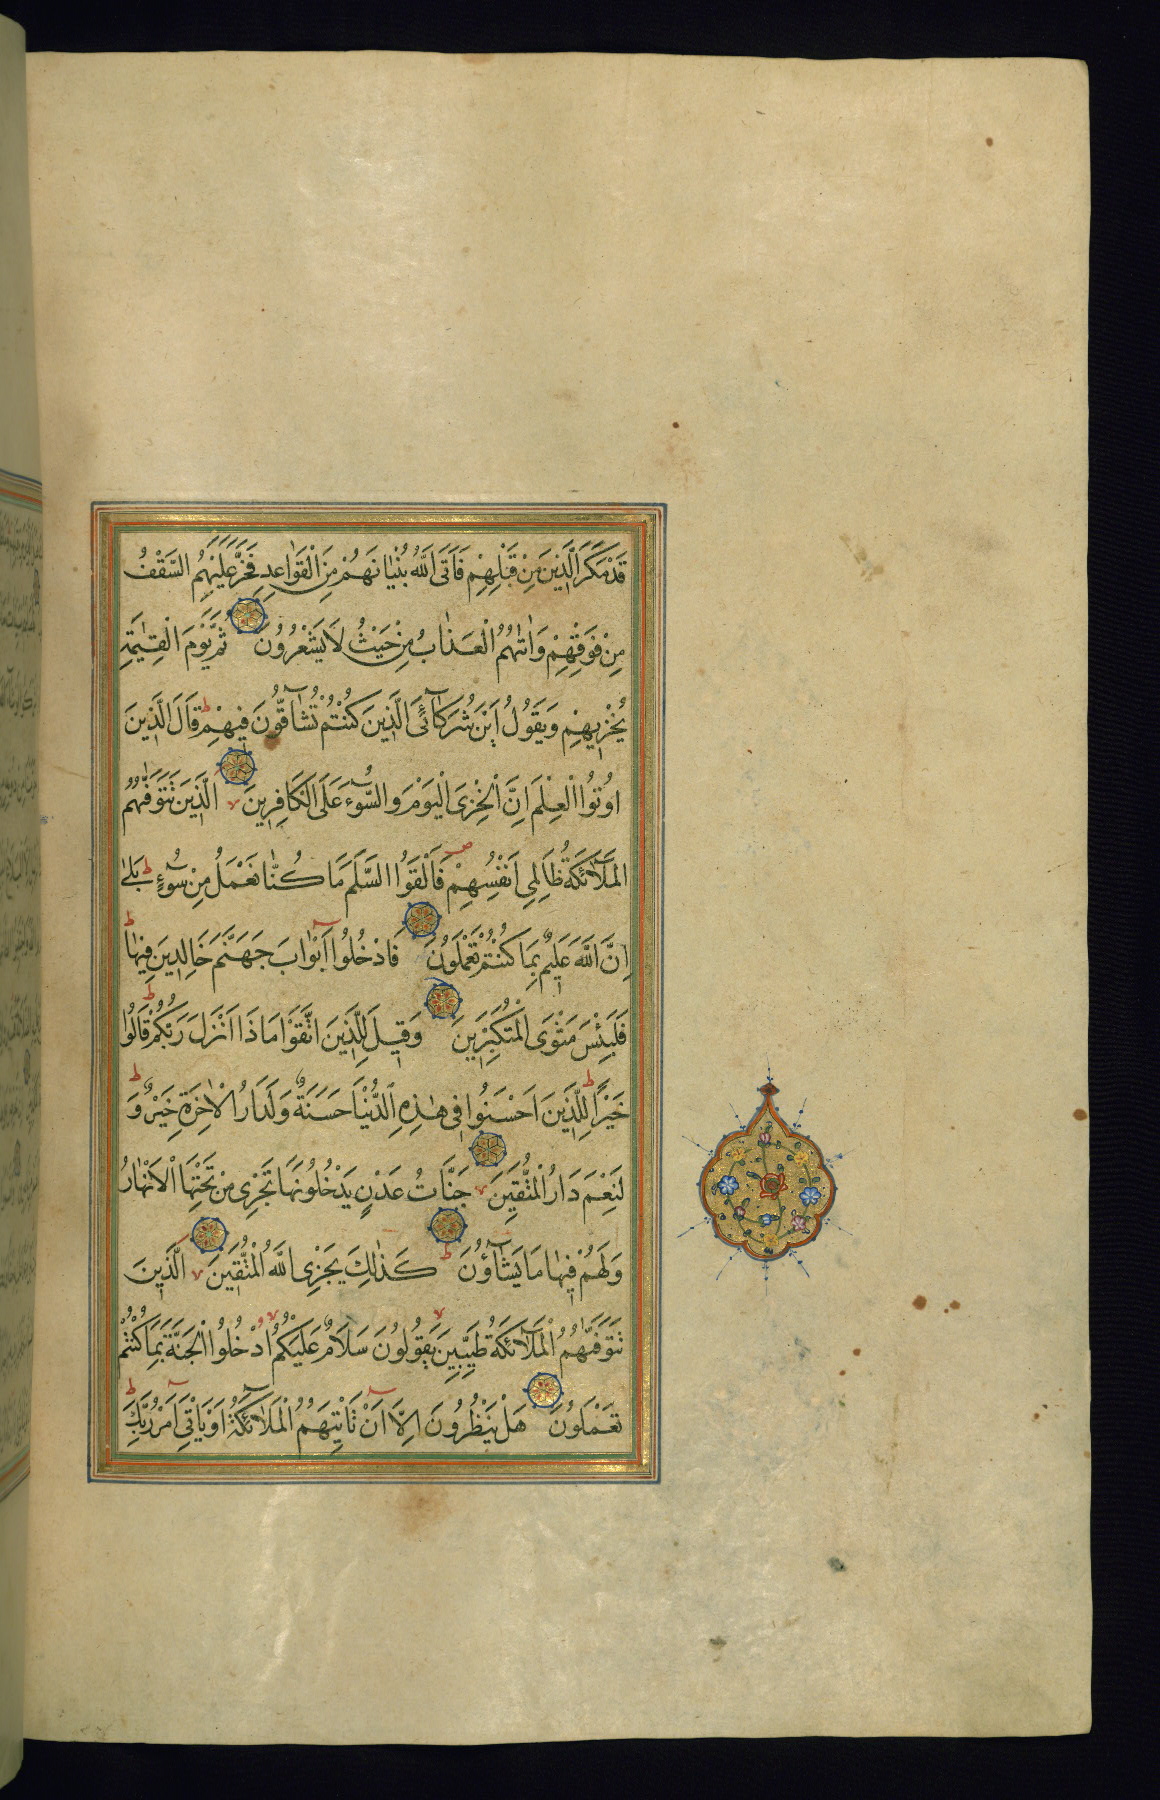 قَدْ مَكَرَ الَّذِينَ مِنْ قَبْلِهِمْ فَاَتَى اللَّهُ بُنْيَانَهُمْ مِنَ الْقَوَاعِدِ فَخَرَّ عَلَيْهِمُ السَّقْفُ
مِنْ فَوْقِهِمْ وَاَتٰيهُمُ الْعَذَابُ مِنْ حَيْثُ لَا يَشْعُرُونَ ثُمَّ يَوْمَ الْقِيٰمَةِ
يُخْزِيهِمْ وَيَقُولُ اَيْنَ شُرَكَآئِيَ الَّذِينَ كُنْتُمْ تُشَآقُّونَ فِيهِمْ ط قَالَ الَّذِينَ
اُوتُوا الْعِلْمَ اِنَّ الْخِزْىَ الْيَوْمَ وَالسُّوٓءَ عَلَى الْكَافِرِينَ لا الَّذِينَ تَتَوَفّٰيهُمُ
الْمَلَآئِكَةُ ظَالِمِى اَنْفُسِهِمْ ص فَاَلْقَوُا السَّلَمَ مَا كُنَّا نَعْمَلُ مِنْ سُوٓءٍ ط بَلٰى
اِنَّ اللَّهَ عَلِيمٌ بِمَا كُنْتُمْ تَعْمَلُونَ فَادْخُلُوٓا اَبْوَابَ جَهَنَّمَ خَالِدِينَ فِيهَا ط
فَلَبِئْسَ مَثْوَى الْمُتَكَبِّرِينَ وَقِيلَ لِلَّذِينَ اتَّقَوْا مَاذَا اَنْزَلَ رَبُّكُمْ ط قَالُوا
خَيْرًا ط لِلَّذِينَ اَحْسَنُوا فِى هٰذِهِ الدُّنْيَا حَسَنَةٌ وَلَدَارُ الْاٰخِرَةِ خَيْرٌ ط وَ
لَنِعْمَ دَارُ الْمُتَّقِينَ لا جَنَّاتُ عَدْنٍ يَدْخُلُونَهَا تَجْرِى مِنْ تَحْتِهَا الْاَنْهَارُ
وَلَهُمْ فِيهَا مَا يَشَآؤُنَ ط كَذٰلِكَ يَجْزِى اللَّهُ الْمُتَّقِينَ لا اَلَّذِينَ
تَتَوَفّٰيهُمُ الْمَلَآئِكَةُ طَيِّبِينَ لا يَقُولُونَ سَلَامٌ عَلَيْكُمُ لا ادْخُلُوا الْجَنَّةَ بِمَا كُنْتُمْ
تَعْمَلُونَ هَلْ يَنْظُرُونَ اِلَّآ اَنْ تَاْتِيَهُمُ الْمَلَآئِكَةُ اَوْ يَاْتِىَ اَمْرُ رَبِّكَ ط